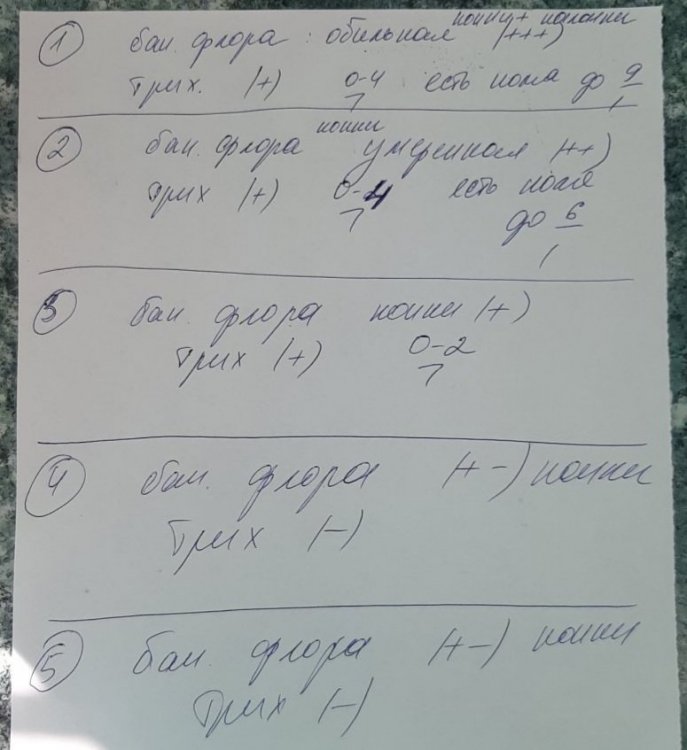 ① бак. флора : обильная кокки + палочки (+++)
трих. (+) 0-4 есть поля до 9
1
② бак. флора кокки умеренная (++)
трих (+) 0-4 есть поля
до 6
1
3 бак. флора кокки (+)
трих (+) 0-2
④ бак. флора (+-) кокки
трих (-)
⑤ бак. флора (+-) кокки
трих (-)